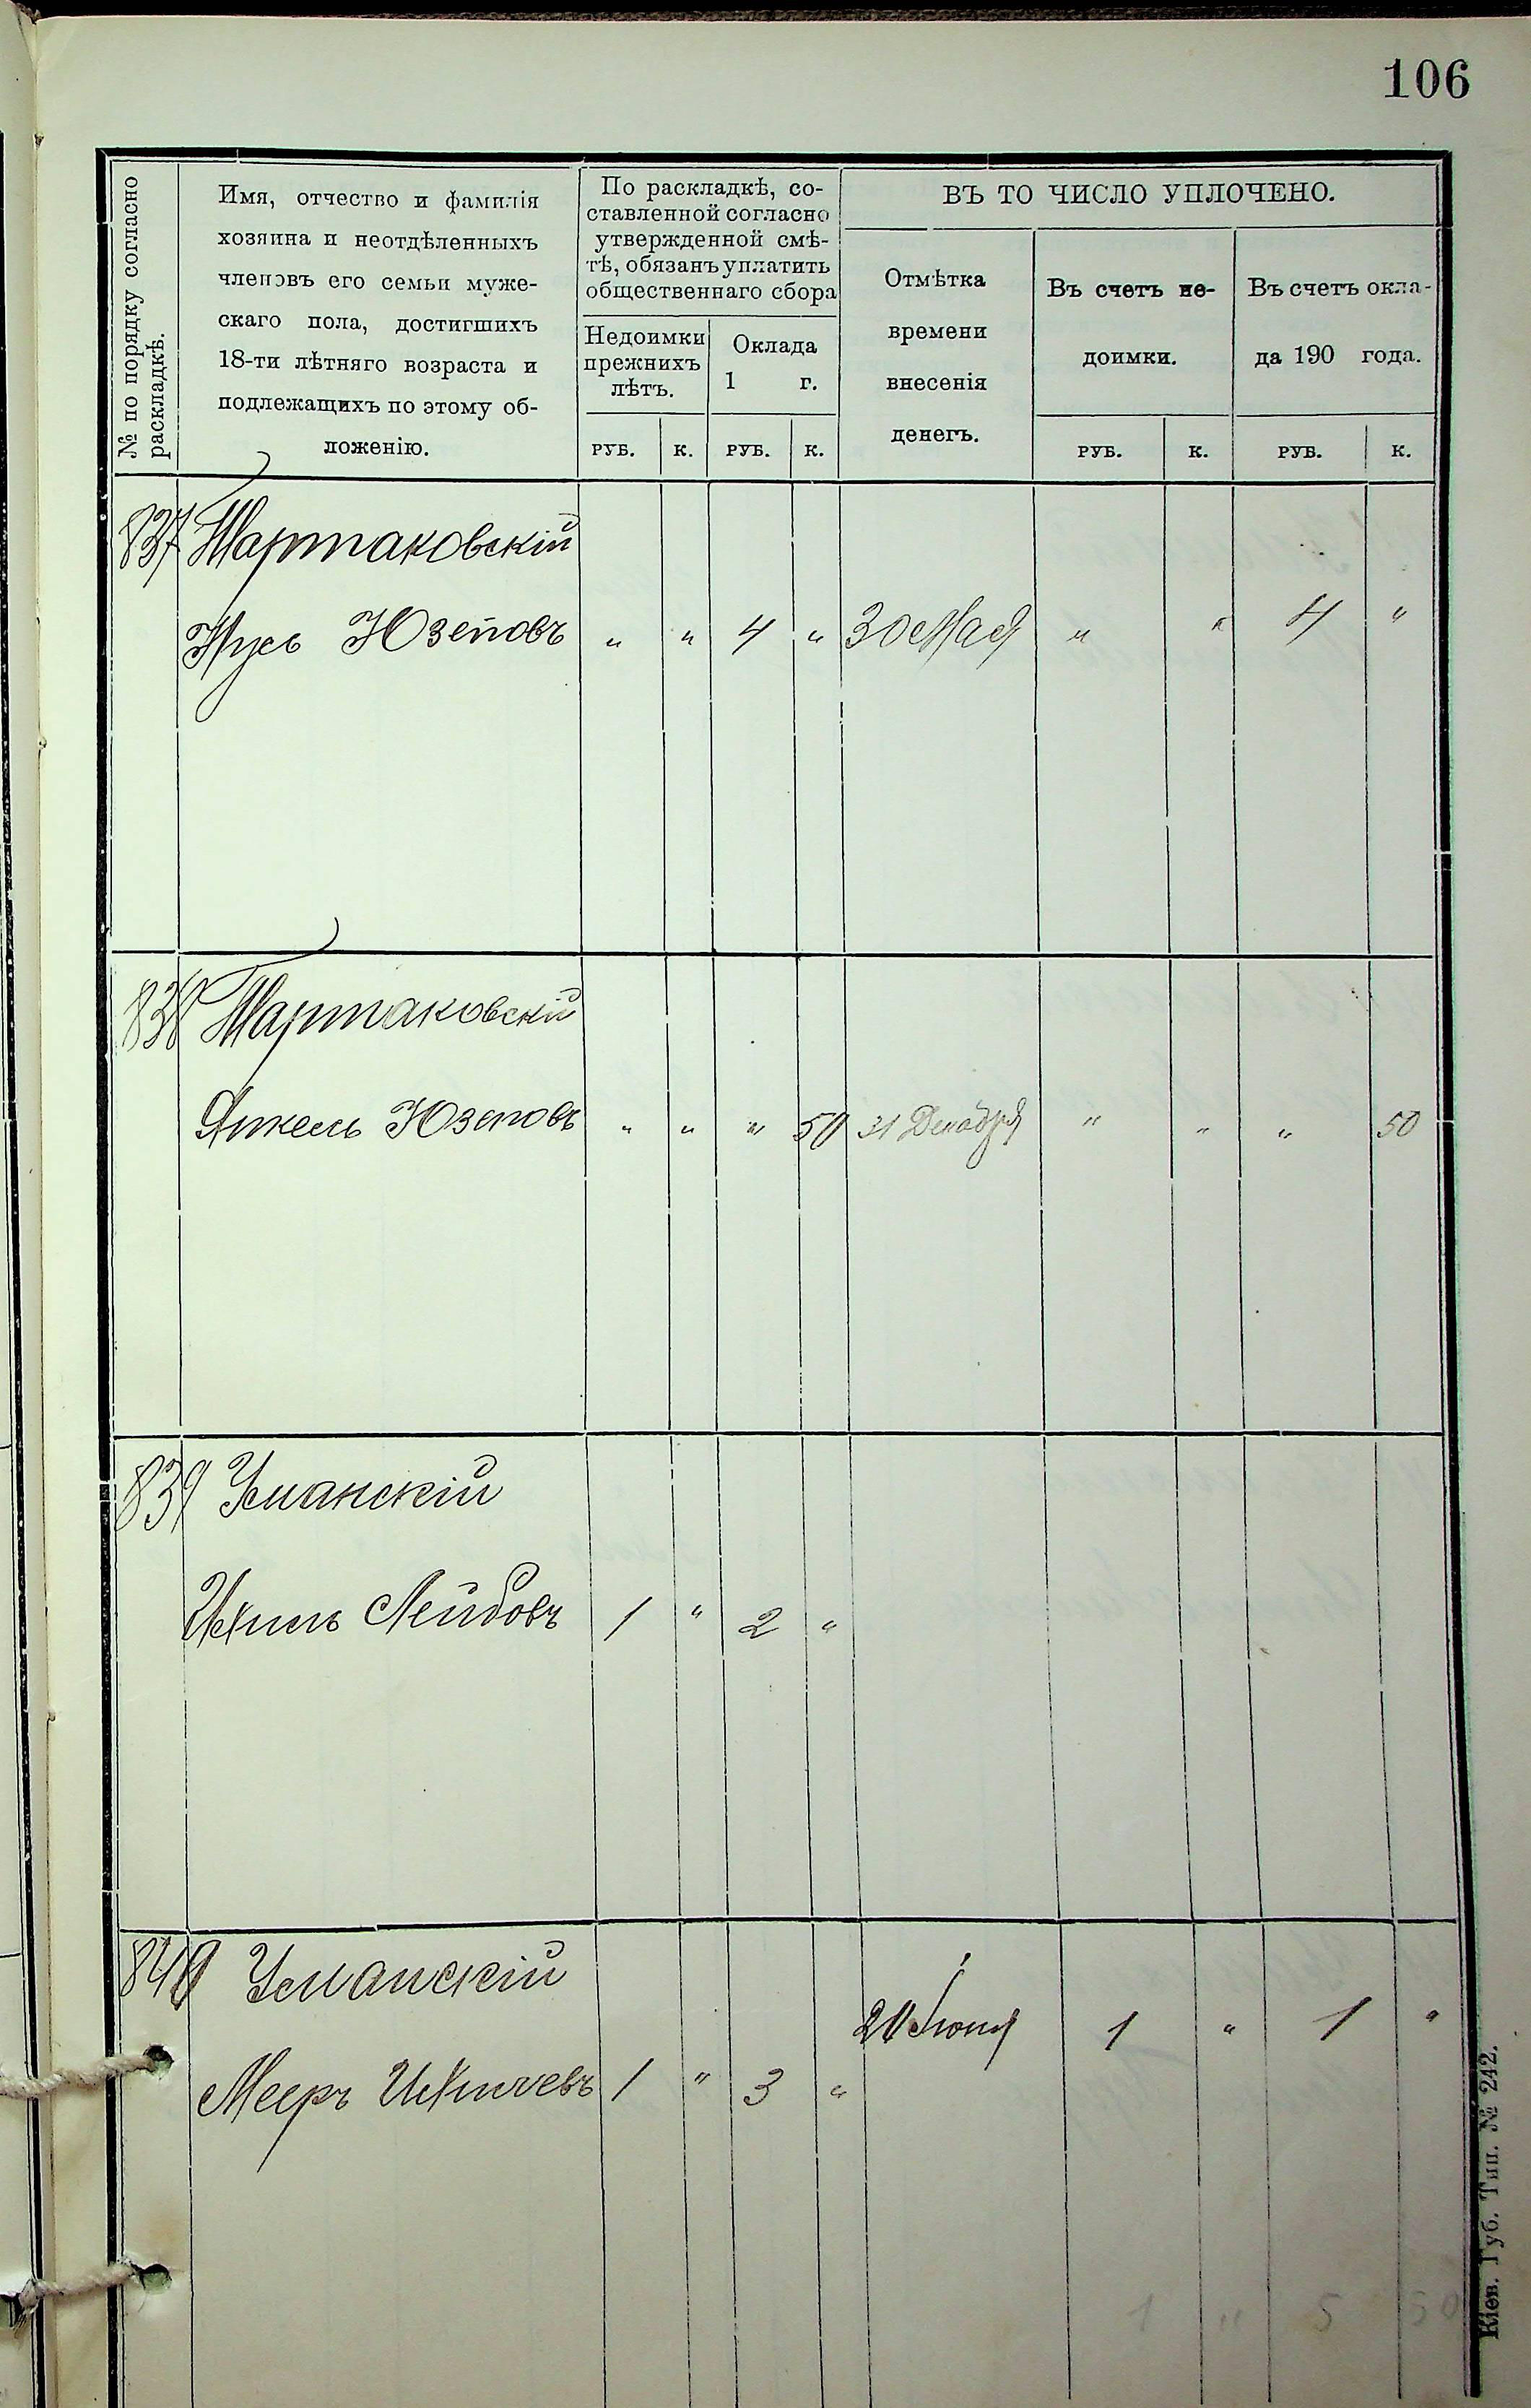 106
№ по порядку согласно
раскладкѣ.
Имя, отчество и фамилія
хозяина и неотдѣленныхъ
членовъ его семьи муже-
скаго пола, достигшихъ
18-ти лѣтняго возраста и
подлежащихъ по этому об-
ложенію.
По раскладкѣ, со-
ставленной согласно
утвержденной смѣ-
тѣ, обязанъ уплатить
общественнаго сбора
Недоимки
прежнихъ
лѣтъ.
Оклада
1 г.
РУБ. К. РУБ. К.
ВЪ ТО ЧИСЛО УПЛОЧЕНО.
Отмѣтка
времени
внесенія
денегъ.
Въ счетъ не-
доимки.
Въ счетъ окла-
да 190 года.
РУБ. К. РУБ. К.
837 Тартаковскій
Нусь Юзеповъ " " 4 " 30 Мая " " 4 "
838 Тартаковскій
Янкель Юзеповъ " " " 50 31 Декабря " " " 50
839 Уманскій
Ихиль Лейбовъ 1 " 2 "
840 Уманскій
20 Іюня 1 " 1 "
Мееръ Ихилевъ 1 " 3 "
1 " 5 50
Кіев. Губ. Тип. № 242.